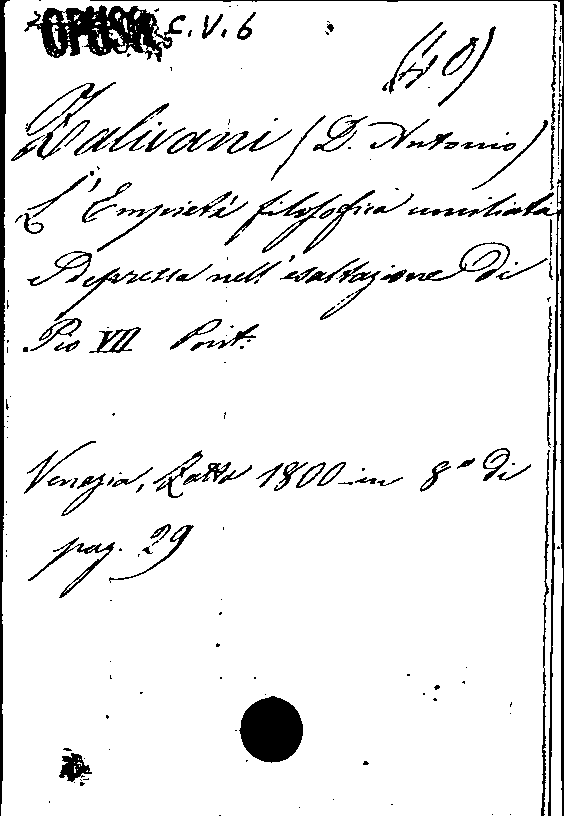 OPUSC. C.V.6
(40)
Zalivani (D. Antonio)
L'Empietá filosofica umiliata
e depressa nell'esaltazione di
Pio VII Pont.
Venezia, Zatta 1800 in 8º di
pag. 29